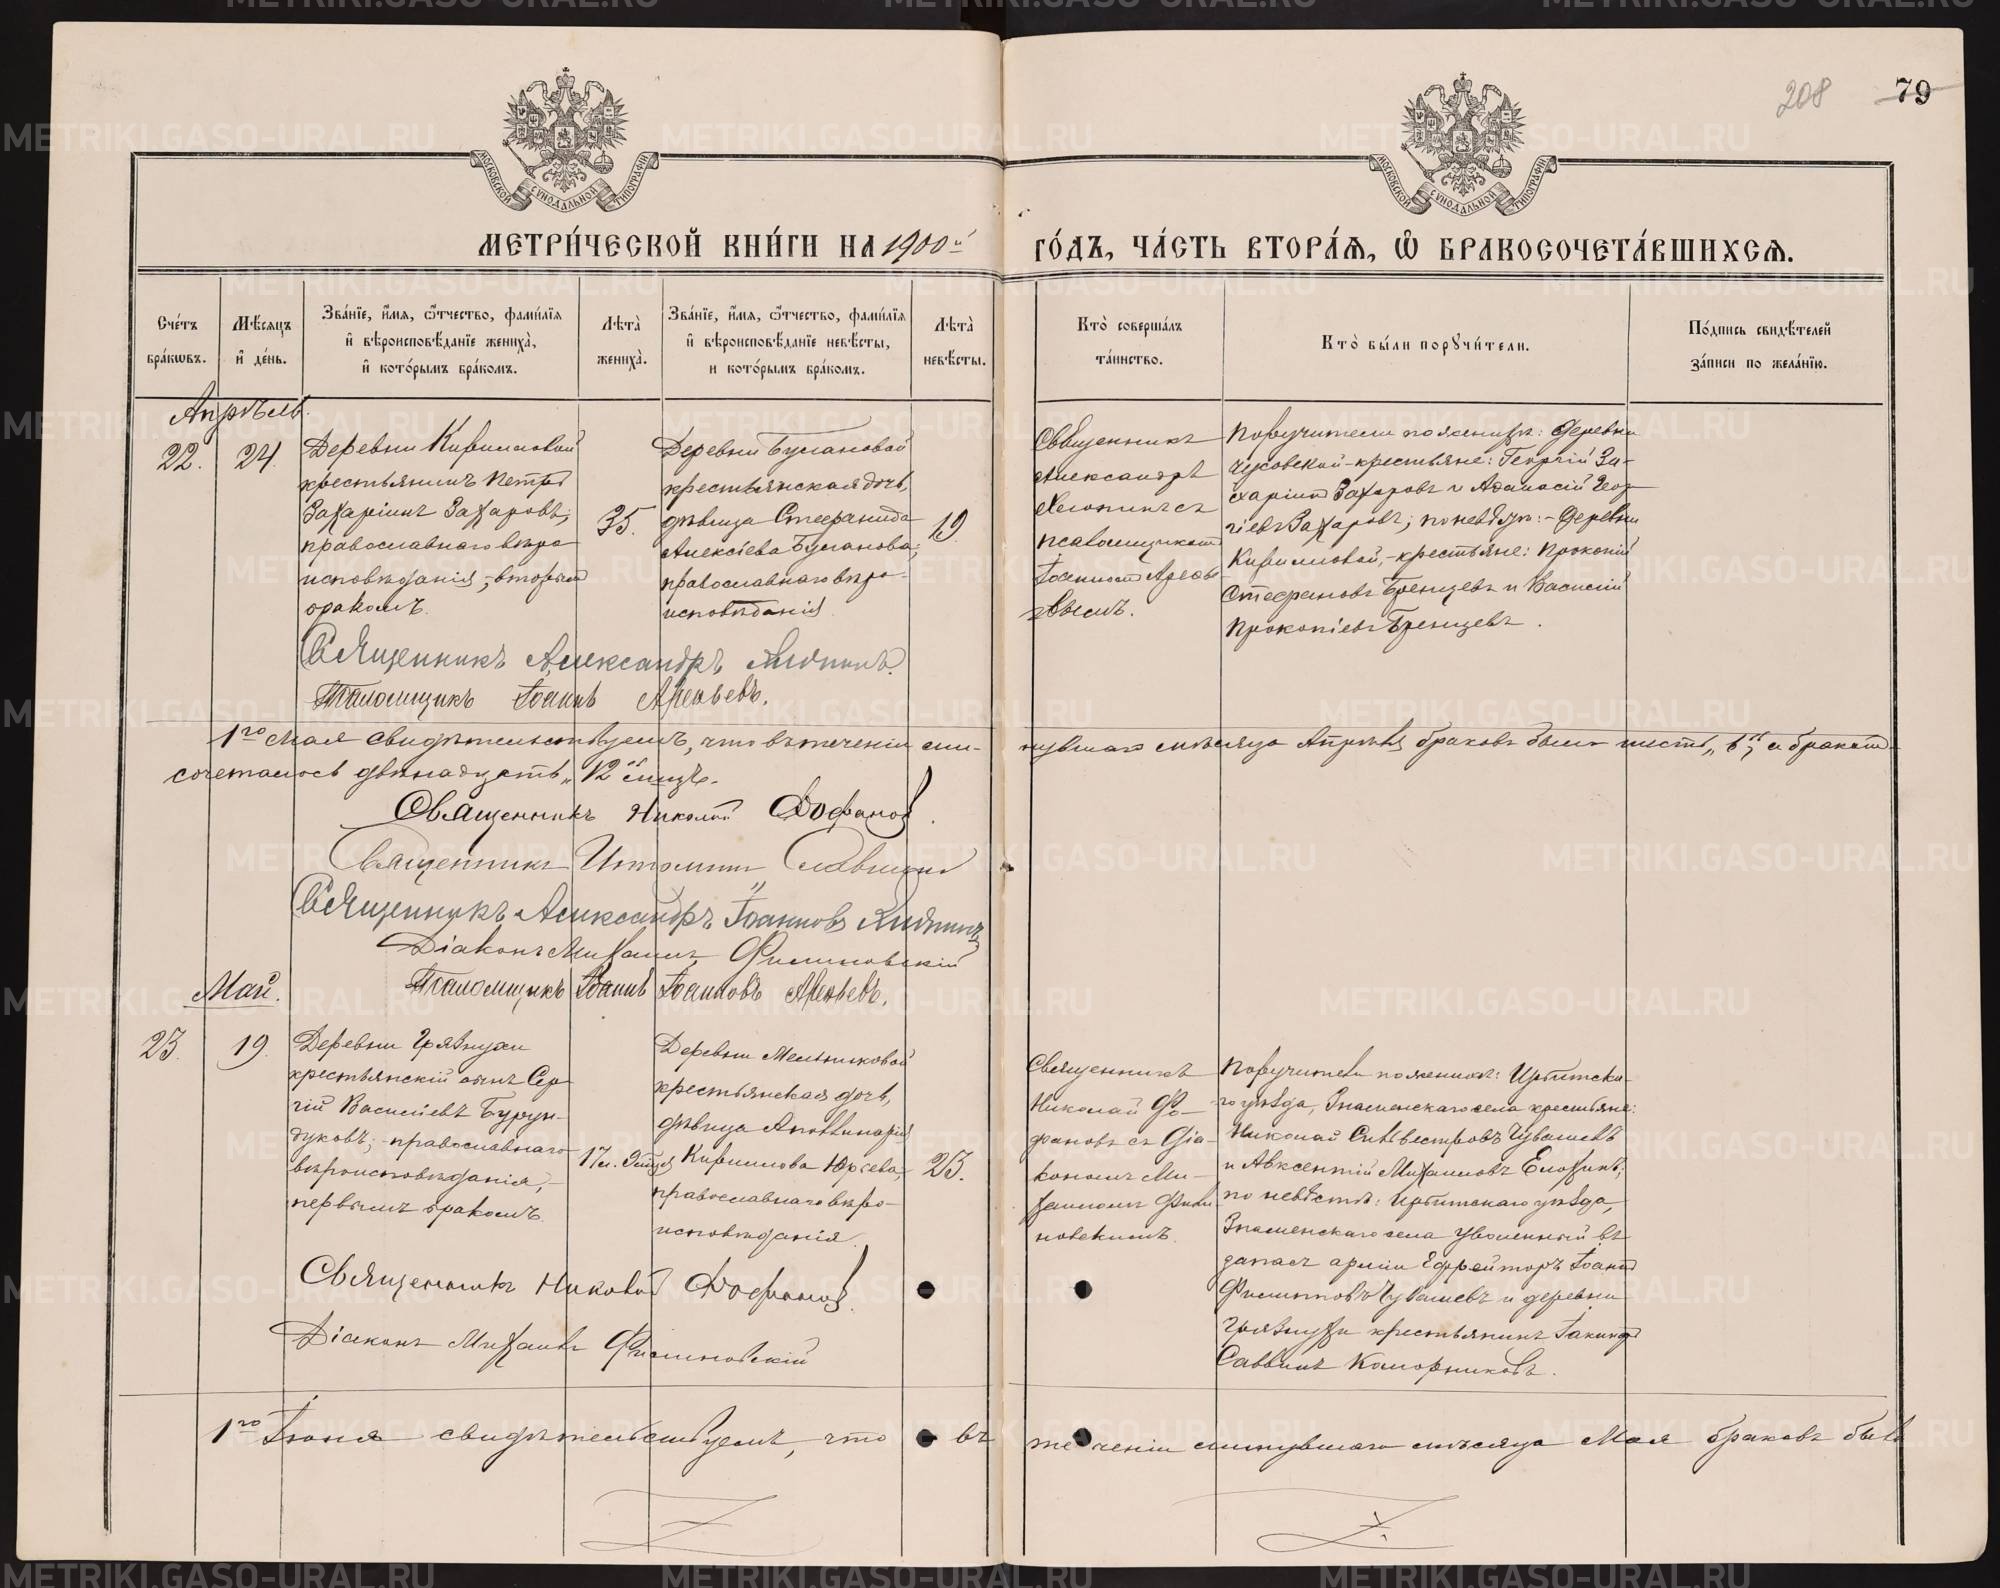 208 79
МОСКОВСКОЙ СѴНОДАЛЬНОЙ ТИПОГРАФІИ
МОСКОВСКОЙ СѴНОДАЛЬНОЙ ТИПОГРАФІИ
МЕТРИ́ЧЕСКОЙ КНИ́ГИ НА 1900й ГО́ДЪ, ЧА́СТЬ ВТОРА́Я, Ѡ БРАКОСОЧЕТА́ВШИХСЯ.
Сче́тъ бра́кѡвъ.
Мѣ́сяцъ и҆ де́нь.
Зва́нїе, и҆́мя, ѻ҆́тчество, фами́лїя и҆ вѣроисповѣ́данїе жениха̀, и҆ кото́рымъ бра́комъ.
Лѣта̀ жениха̀.
Зва́нїе, и҆́мя, ѻ҆́тчество, фами́лїя и҆ вѣроисповѣ́данїе невѣ́сты, и кото́рымъ бра́комъ.
Лѣта̀ невѣ́сты.
Кто̀ соверша́лъ та́инство.
Кто̀ бы́ли порꙋчи́тели.
По́дпись свидѣ́телей за́писи по жела́нїю.
Апрѣль.
22.
24
Деревни Кирилловой
крестьянинъ Петръ
Захаріинъ Захаровъ,
православнаго вѣро
исповѣданія, вторымъ
бракомъ.
35.
Деревни Булановой
крестьянская дочь,
дѣвица Стефанида
Алексіева Буланова,
православнаго вѣро-
исповѣданія.
19.
Священникъ
Александръ
съ
псаломщикомъ
Іоанномъ Арефь
евымъ.
Поручители по женихѣ: деревни
крестьяне: Георгій За-
харіинъ Захаровъ и Аѳанасій Геор
гіевъ Захаровъ; по невѣстѣ:- деревни
Кирилловой,-крестьяне: Прокопій
Стефановъ Бренцевъ и Василій
Прокопіевъ Бренцевъ.
Священникъ Александръ
Псаломщикъ Іоаннъ Арефьевъ.
1го Мая свидѣтельствуемъ, что въ теченіи ми- нувшаго мѣсяца Апрѣля браковъ было шесть „6", а бракомъ
сочеталось двѣнадцать „12" лицъ.
Священникъ Николай Дофановъ.
Священникъ Славнинъ
Священникъ Александръ Іоанновъ
Діаконъ Михаилъ Филиновскій
Псаломщикъ Іоаннъ Іоанновъ Арефьевъ.
Май.
23.
19.
Деревни Грязнухи
крестьянскій сынъ Сер
гій Василіевъ Бурун-
дуковъ; православнаго
вѣроисповѣданія,-
первымъ бракомъ.
17л. 9мѣся
Деревни Мельниковой
крестьянская дочь,
дѣвица Аполлинарія
Кириллова Юрьева,
православнаго вѣро-
исповѣданія.
23.
Священникъ
Николай До-
фановъ съ діа-
кономъ Ми-
хаиломъ Фили
новскимъ.
Поручители по женихѣ: Ирбитска-
го уѣзда, Знаменскаго села крестьяне:
Николай Сильвестровъ Чувашевъ
и Авксентій Михаиловъ Елохинъ;
по невѣстѣ: Ирбитскаго уѣзда,
Знаменскаго села уволенный въ
запасъ арміи Ефрейторъ Іоаннъ
Филипповъ Чувашевъ и деревни
Грязнухи крестьянинъ Іакинфъ
Саввинъ Коморниковъ.
Священникъ Николай Дофановъ.
Діаконъ Михаилъ Филиновскій
1го Іюня свидѣтельствуемъ, что въ теченіи минувшаго мѣсяца Мая браковъ былъ
METRIKI.GASO-URAL.RU